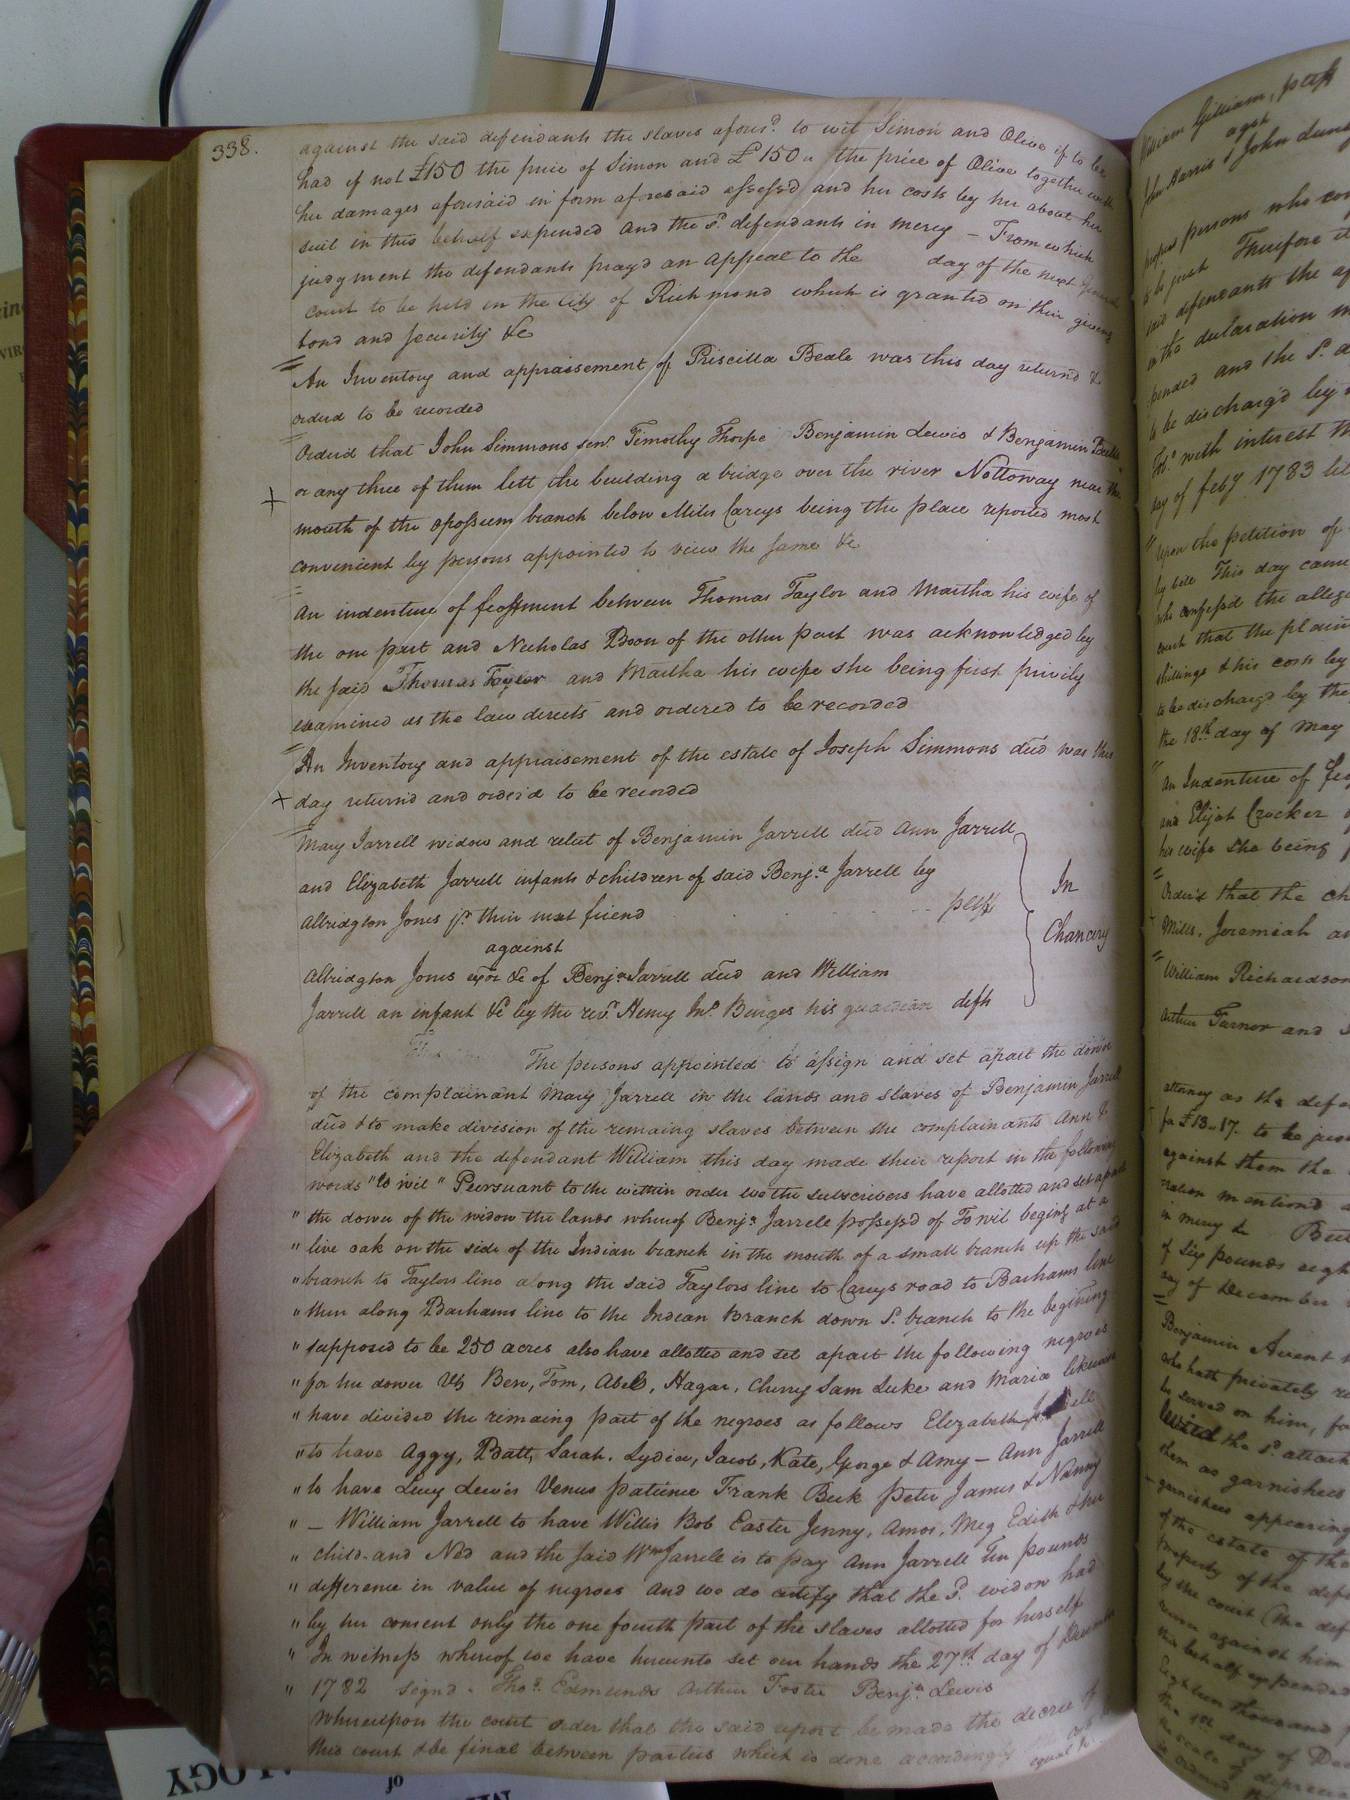 338.
against the said defendants the slaves afores.d to wit Simon and Olive if to be
had if not £150 the price of Simon and £150 " the price of Olive together with
her damages aforesaid in form aforesaid assessd and her costs by her about her
suit in this behalf expended and the s.d defendants in mercy — From which
judgment the defendants prayd an appeal to the day of the next
court to be held in the city of Richmond which is granted on their giving
bond and security &c
An Inventory and appraisement of Priscilla Beale was this day returnd &
orderd to be recorded
Orderd that John Simmons senr. Timothy Thorpe Benjamin Lewis & Benjamin
or any three of them lett the building a bridge over the river Nottoway near the
mouth of the opossum branch below Miles Careys being the place reported most
convenient by persons appointed to view the same &c
An indenture of feoffment between Thomas Taylor and Martha his wife of
the one part and Nicholas Boon of the other part was acknowledged by
the said Thomas Taylor and Martha his wife she being first privily
examined as the law directs and ordered to be recorded
An Inventory and appraisement of the estate of Joseph Simmons decd was this
day returnd and orderd to be recorded
Mary Jarrell widow and relict of Benjamin Jarrell decd Ann Jarrell
and Elizabeth Jarrell infants & children of said Benj.a Jarrell by
Albridgton Jones jr. their next friend pltfs
In
Chancery
against
Albridgton Jones exor &c of Benj.a Jarrell decd and William
Jarrell an infant &c by the rev.d Henry Jn.o Burges his guardian defts
The persons appointed to assign and set apart the dower
of the complainant Mary Jarrell in the lands and slaves of Benjamin Jarrell
decd & to make division of the remaing slaves between the complainants Ann &
Elizabeth and the defendant William this day made their report in the following
words "to wit" Persuant to the within order we the subscribers have allotted and set apart
" the dower of the widow the lands whereof Benj.a Jarrell possessd of To wit beging at a
" live oak on the side of the Indian branch in the mouth of a small branch up the said
" branch to Taylors line along the said Taylors line to Careys road to Barhams line
" then along Barhams line to the Indian Branch down s.d branch to the begining
" supposed to be 250 acres also have allotted and set apart the following negroes
" for her dower Vz Ben, Tom, Abel, Hagar, Cherry Sam Luke and Maria likewise
" have divided the remaing part of the negroes as follows Elizabeth
" to have Aggy, Batt, Sarah, Lydia, Jacob, Kate, George & Amy — Ann Jarrell
" to have Lucy Lewis Venus patience Frank Beck peter James & Nanny
" — William Jarrell to have Willis Bob Easter Jenny, Amos, Meg Edith & her
" child and Ned and the said Wm Jarrell is to pay Ann Jarrell Ten pounds
" difference in value of negroes and we do certify that the s.d widow had
" by her consent only the one fourth part of the slaves allotted for herself
" In witness whereof we have hereunto set our hands the 27th day of December
" 1782 signd. Tho.s Edmunds Arthur Foster Benj.a Lewis
Whereupon the court order that the said report be made the decree of
this court & be final between parties which is done accordingly
William Gilliam, pltff
agst
John Harris & John
proper persons who
to be just Therefore it
said defendants the
in the declaration
pended and the s.d
to be dischargd by
with interest
day of feby 1783
Upon the petition of
This day came
who confessd the
court that the plain
shillings & his costs by
to be dischargd by the
the 18th day of May
An Indenture of
and Elijah Crocker
his wife she being
Orderd that the
Mills, Jeremiah
William Richardson
Arthur Turner and
attorney as the
for £13..17. to be
against them the
ration mentiond
in mercy &
of six pounds
day of December
Benjamin Avent
who hath privately
be served on him,
levied the s.d
them as garnishees
garnishees appearing
of the estate of the
property of the
by the court (the
against him
this behalf expended
Eighteen thousand
the 1st day of
the scale of